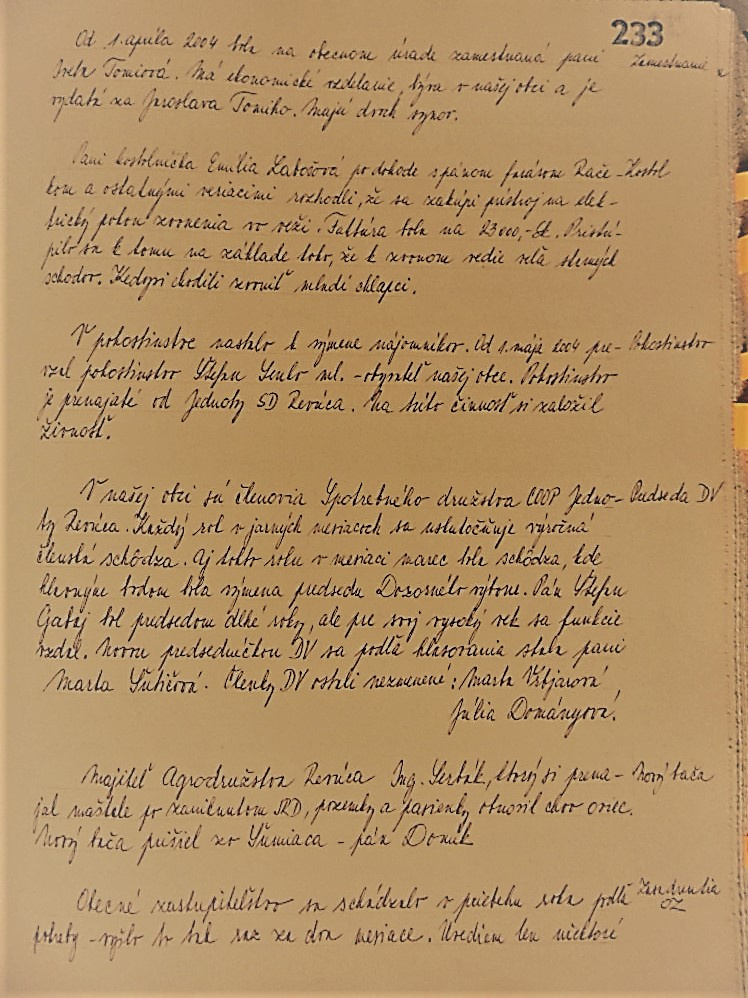 233
Od 1. apríla 2004 bola na obecnom úrade zamestnaná pani Zamestnanie
Iveta Tomiová. Má ekonomické vzdelanie, býva v našej obci a je
vydatá za Jaroslava Tomiho. Majú dvoch synov.
Pani kostolníčka Emília Labočová po dohode s pánom farárom Rače- Kostol
kom a ostatnými veriacimi rozhodli, že sa zakúpi prístroj na elek-
trický pohon zvonenia vo veži. Faktúra bola na 23 000,- Sk. Pristú-
pilo sa k tomu na základe toho, že k zvonom vedie veľa strmých
schodov. Kedysi chodili zvoniť mladí chlapci.
V pohostinstve nastalo k výmene nájomníkov. Od 1. mája 2004 pre- Pohostinstvo
vzal pohostinstvo Štefan Lenko ml. - obyvateľ našej obce. Pohostinstvo
je prenajaté od Jednoty SD Revúca. Na túto činnosť si založil
živnosť.
V našej obci sú členovia Spotrebného družstva COOP Jedno- Predseda DV
ty Revúca. Každý rok v jarných mesiacoch sa uskutočňuje výročná
členská schôdza. Aj tohto roku v mesiaci marec bola schôdza, kde
hlavným bodom bola výmena predsedu Dozorného výboru. Pán Štefan
Gabaj bol predsedom dlhé roky, ale pre svoj vysoký vek sa funkcie
vzdal. Novou predsedníčkou DV sa podľa hlasovania stala pani
Marta Šutičová. Členky DV ostali nezmenené: Marta
Júlia Domanyová.
Majiteľ Agrodružstva Revúca Ing. Serbák, ktorý si prena- Nový bača
jal maštale po zaniknutom JRD, pozemky a pasienky obnovil chov oviec.
Nový bača prišiel zo Šumiaca - pán Domik
Obecné zastupiteľstvo sa schádzalo v priebehu roka podľa Zasadnutia
OZ
potreby - vyšlo to tak raz za dva mesiace. Uvediem len niektoré